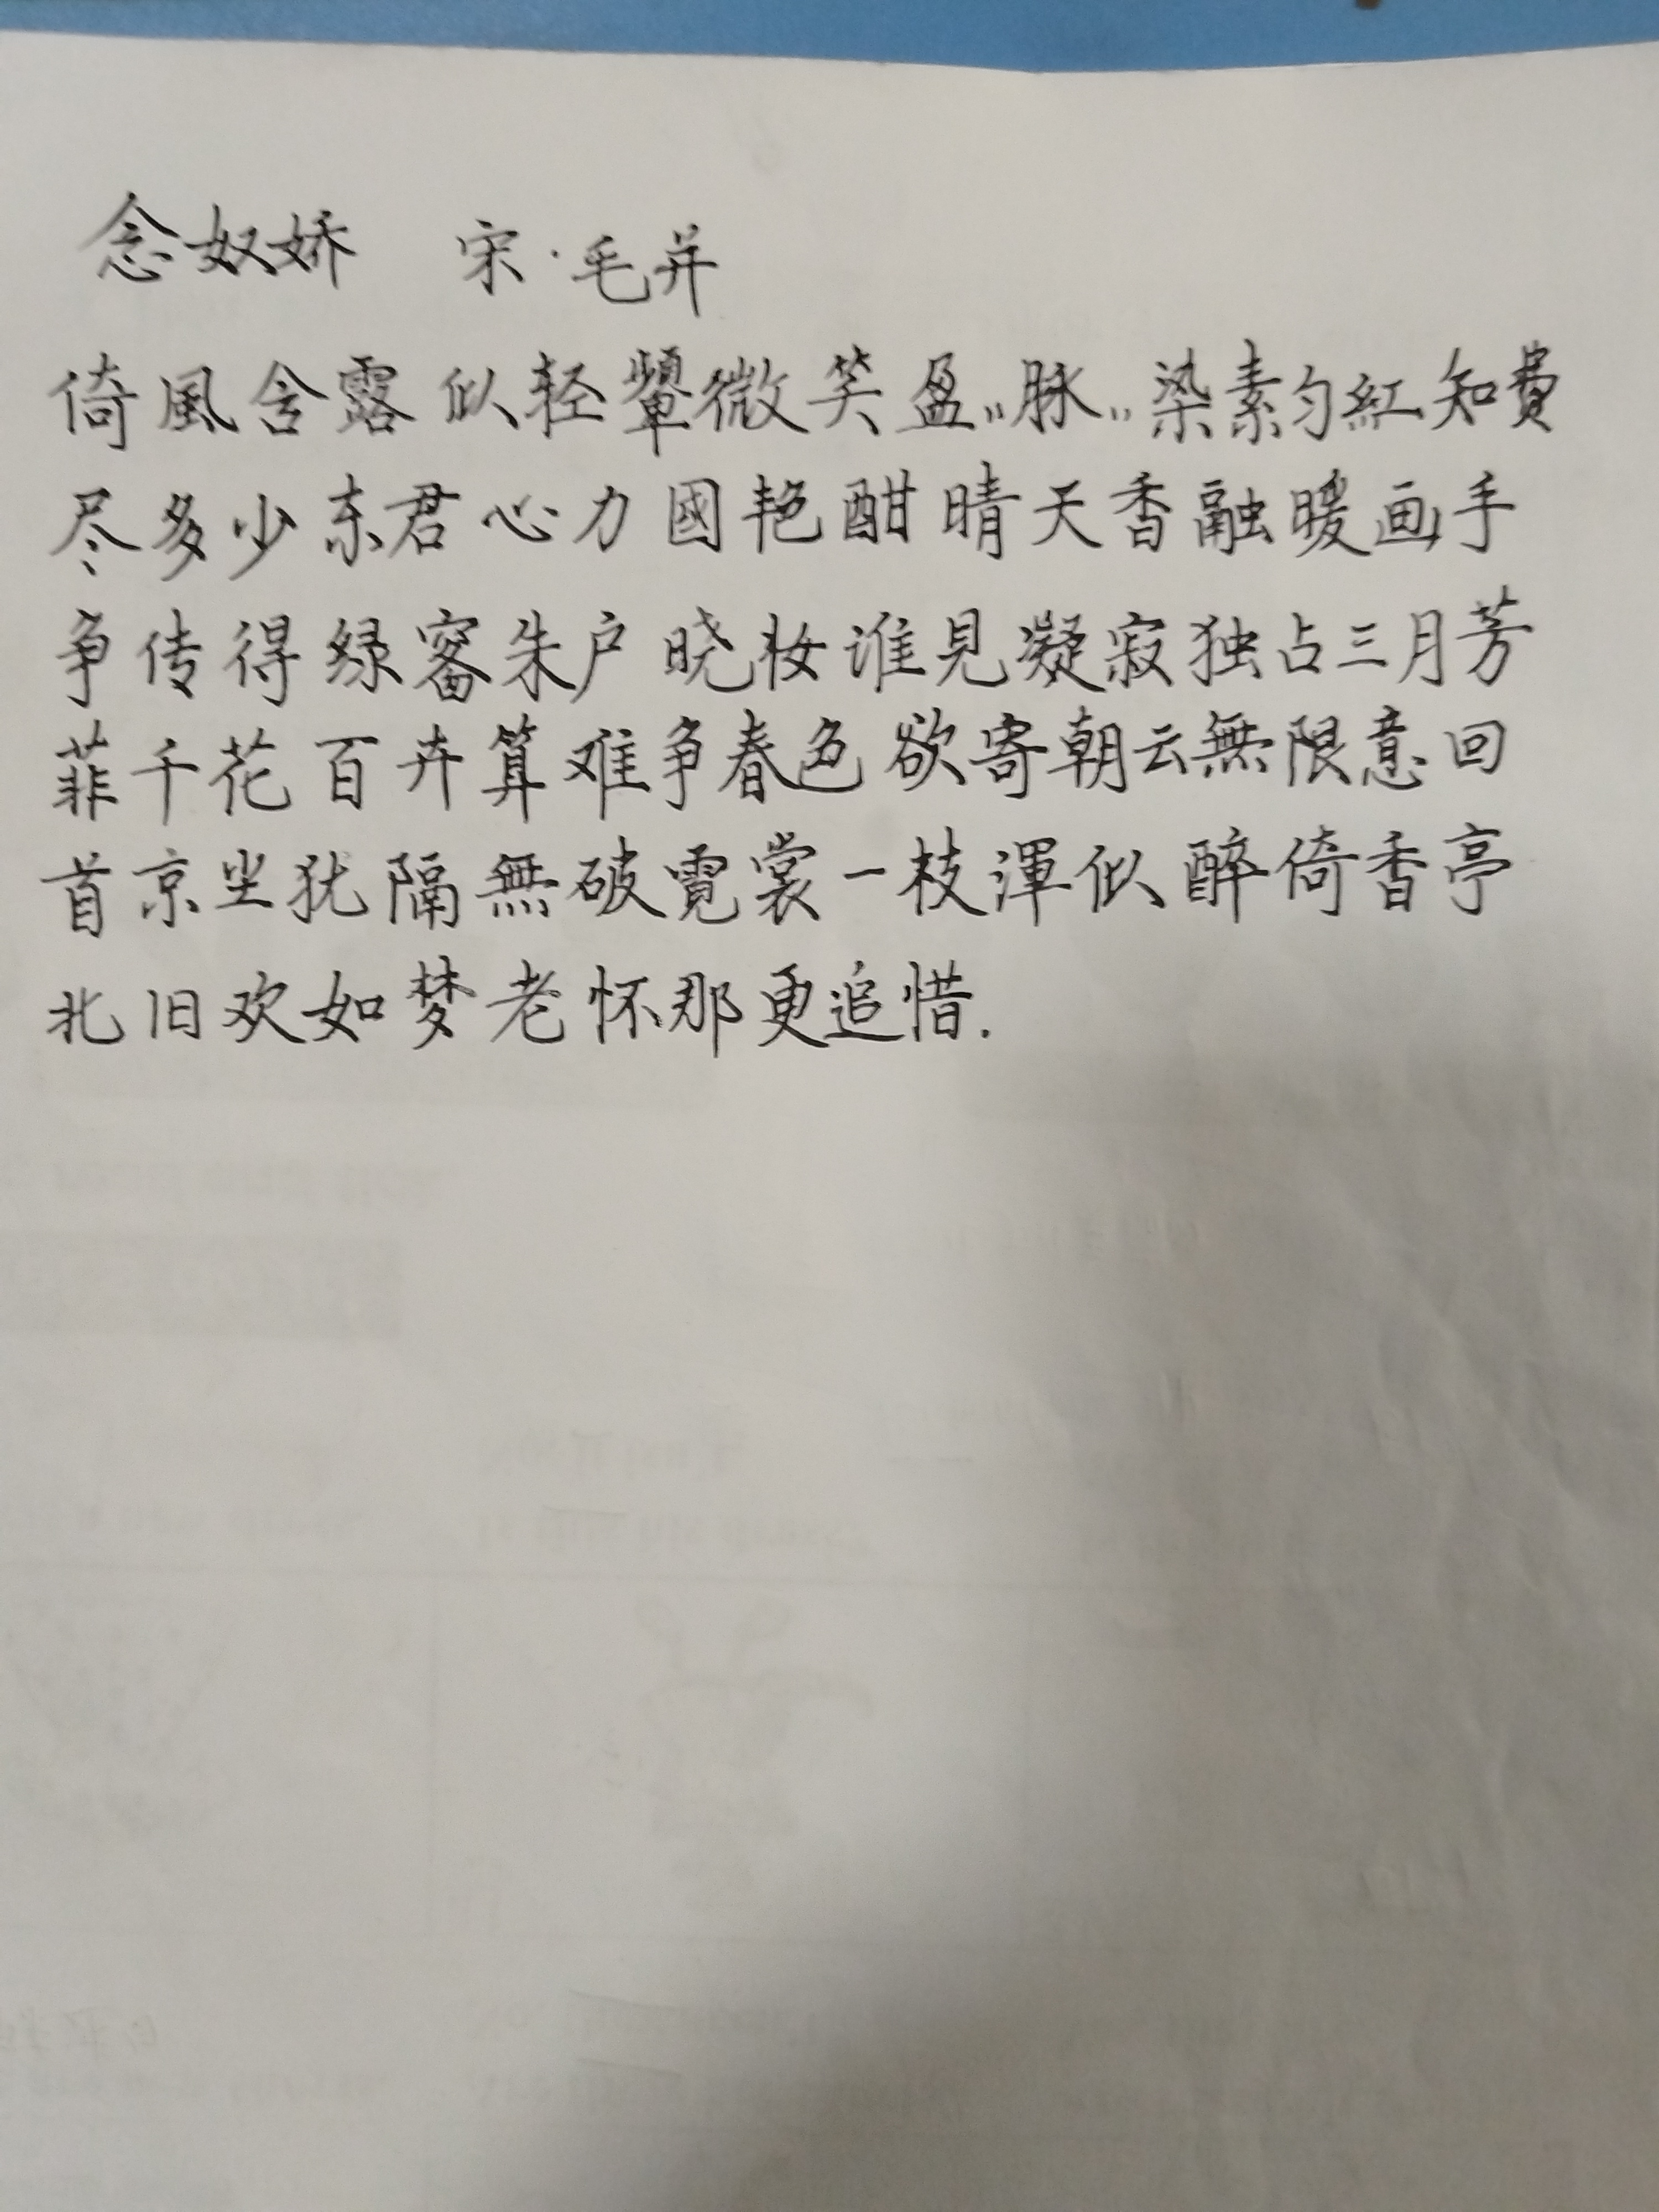 念奴娇 宋·毛并
倚風含露似轻颦微笑盈〃脉〃染素匀紅知費
尽多少东君心力國艳酣晴天香融暖画手
争传得绿窗朱户晓妆谁見凝寂独占三月芳
菲千花百卉算难争春色欲寄朝云無限意回
首京尘犹隔無破霓裳一枝渾似醉倚香亭
北旧欢如梦老怀那更追惜.